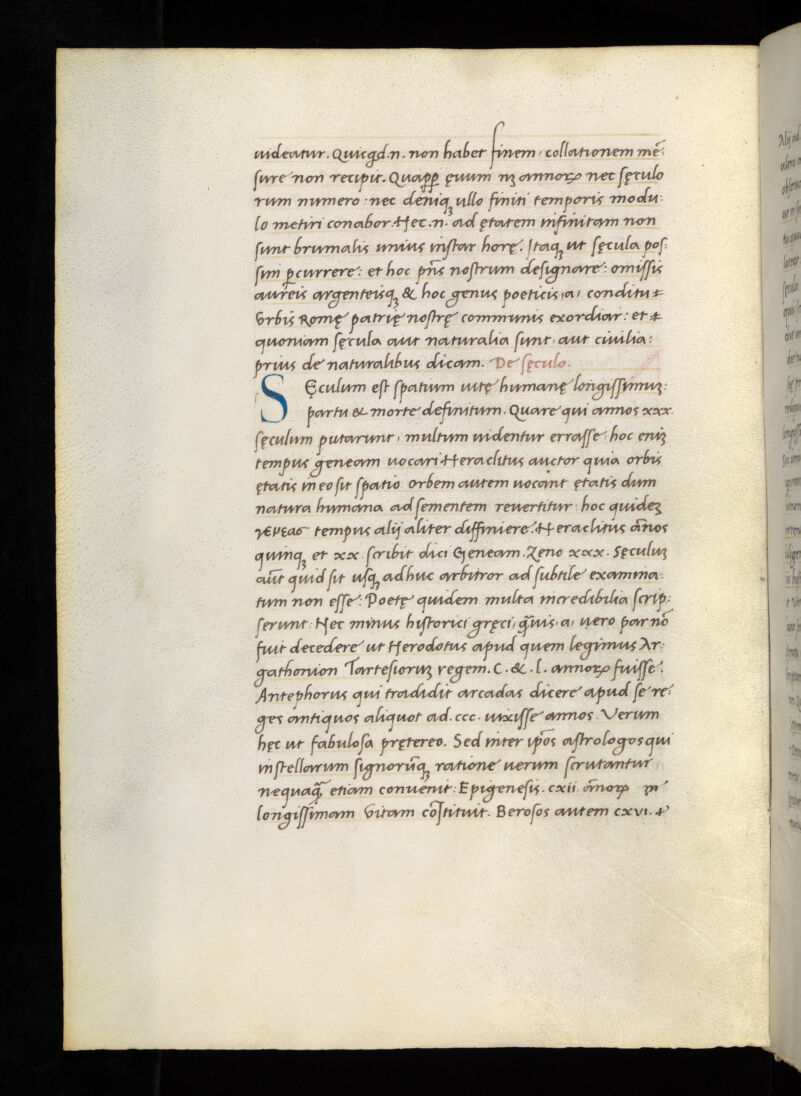 uideatur. Quicqd.n. non habet finem, collationem mẽ-
sure non recipit. Quapp̱ ęuum nȝ annoꝝ nec sęculo
rum numero: nec deniqȝ ullo finiti temporis modu-
lo metiri conabor. Hec.n. ad ętatem infinitam non
sunt brumalis unius instar horę. Itaqȝ ut sęcula pos-
sim ꝑcurrere: et hoc pñs nostrum designare: omissis
aureis argenteisqȝ & hoc genus poeticis, a, conditu
Vrbis Romę patrię nostrę communis exordiar: et
quoniam sęcula aut naturalia sunt, aut ciuilia:
prius de naturalibus dicam. De sęculo.
Sęculum est spatium uitę humanę longissimuȝ:
partu & morte definitum. Quare qui annos xxx.
sęculum putarunt, multum uidentur errasse, hoc eniȝ
tempus geneam uocari Heraclitus auctor quia orbis
ętatis in eo sit spatio. orbem autem uocant ętatis dum
natura humana ad sementem reuertitur: hoc quideȝ
γενεας tempus alij aliter diffiniere. Heraclitus ãnos
quinqȝ et xx. scribit dici Geneam. Zeno xxx. Sęculuȝ
aũt quid sit usqȝ adhuc arbitror ad subtile examina-
tum non esse: Poetę quidem multa incredibilia scrip-
serunt: Nec minus historici gręci, q̃uis, a, uero par nõ
fuit decedere ut Herodotus apud quem legimus Ar-
gathonion Tartesioruȝ regem. C. &. l. annoꝝ fuisse.
Antephorus qui tradidit arcadas dicere apud se re-
ges antiquos aliquot ad. ccc. uixisse annos. Verum
hęc ut fabulosa pretereo. Sed inter ip̃os astrologos qui
in stellarum signorũqȝ ratione uerum scrutantur
nequaq̃, etiam conuenit: Epigenesis. cxii. ãnoꝝ in
longissimam Vitam cõstituit. Berosos autem cxvi.